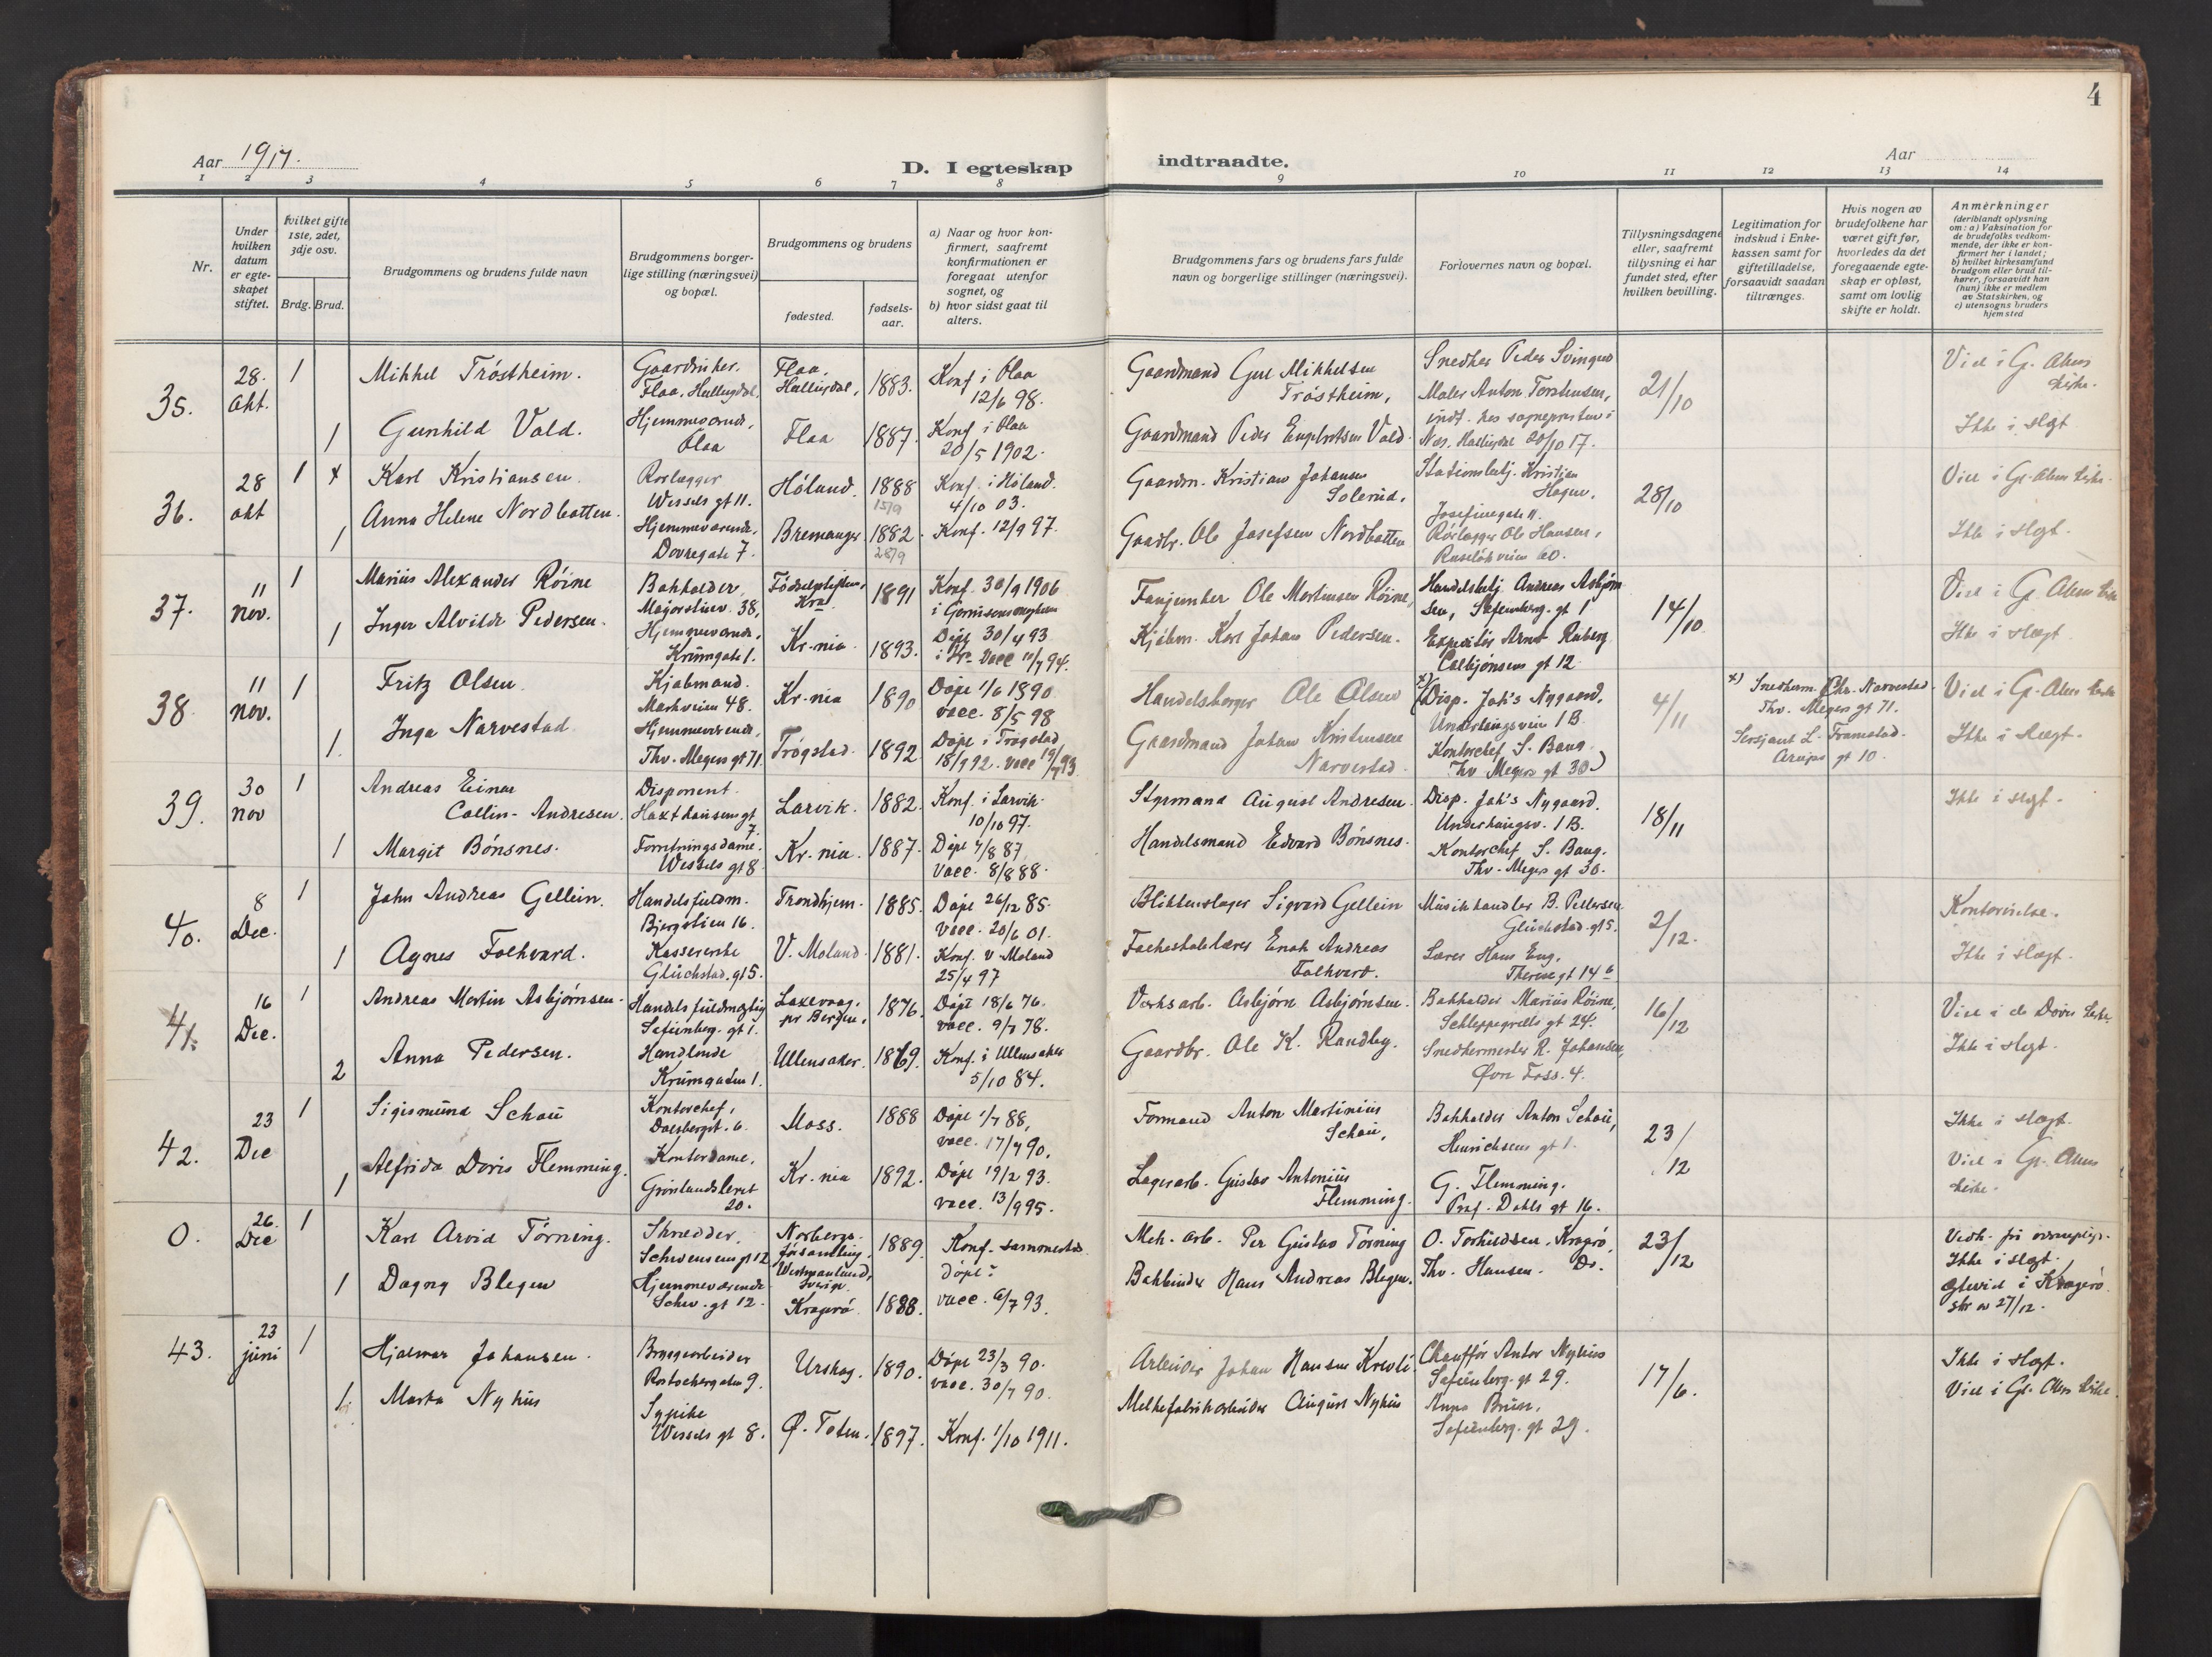 4
Aar 1917.
D. I egteskap indtraadte.
Aar
1 2 3 4 5 6 7 8 9 10 11 12 13 14
Nr.
Under hvilken datum er egteskapet stiftet.
hvilket gifte 1ste, 2det, 3dje osv.
Brdg. Brud.
Brudgommens og brudens fulde navn
Brudgommens borgerlige stilling (næringsvei) og bopæl.
Brudgommens og brudens
fødested.
fødselsaar.
a) Naar og hvor konfirmert, saafremt konfirmationen er foregaat utenfor sognet, og
b) hvor sidst gaat til alters.
Brudgommens fars og brudens fars fulde navn og borgerlige stillinger (næringsvei).
Forlovernes navn og bopæl.
Tillysningsdagene eller, saafremt tillysning ei har fundet sted, efter hvilken bevilling.
Legitimation for indskud i Enkekassen samt for giftetilladelse, forsaavidt saadan tiltrænges.
Hvis nogen av brudefolkene har været gift før, hvorledes da det foregaaende egteskap er opløst, samt om lovlig skifte er holdt.
Anmerkninger
(deriblandt oplysning om: a) Vaksination for de brudefolks vedkommende, der ikke er konfirmert her i landet; b) hvilket kirkesamfund brudgom eller brud tilhører, forsaavidt han (hun) ikke er medlem av Statskirken, og c) utensogns bruders hjemsted
35. 28. Okt. 1 Mikkel Tröstheim. Gaardbruker. Flaa, Hallingdal, Flaa, Hallingdal, 1883. Konf i Flaa 12/6 98.
Gaardmand Gul Mikkelsen Tröstheim, Snedker Peder Svingen 21/10 Viel i G. Akers kirke.
1 Gunhild Vold. Hjemmeværende, Flaa Flaa 1887. Konf i Flaa 20/5 1902.
Gaardmand Peder Vold. Maler Anton Torstensen, indt. hos sognepresten i Nes. Hallingdal 20/10 17. Ikke i slegt
36. 28 okt 1 x Karl Kristiansen. Rørlægger Wessels gt 11. Höland. 1888 15/9 Konf. i Höland. 4/10 03.
Gaardm. Kristian Johansen Solerud, Stationsbetj. Kristian Hagen, Josefinegate 11. 28/10 Viel i Gl. Akers kirke.
1 Anna Helene Nordbotten. Hjemmeværende, Dovregate 7. Bremanger 1882. 28/9 Konf. 12/9 97.
Gaardbr. Ole Josefsen Nordbotten Rörlægger Ole Hansen, Ruselökveien 60. Ikke i slegt.
37. 11 nov. 1 Marius Alexander Röine Bokholder, Majorstuev. 38, 1891 Konf. 30/9 1906 i Garnisonsmenigheten
Fanjunker Ole Mortensen Röine, Handelsbetj. Andreas Asbjörnsen, Sofienberg. gt 1 14/10 Viel i Gl. Akers kirke
1 Inga Alvilde Pedersen. Hjemmeværende, Krumgate 1. Kr.nia. 1893. Döpt 30/4 93 Vacc 10/7 94.
Kjöbm. Karl Johan Pedersen. Expeditör Arnt Ruberg Colbjönsens gt 12 Ikke i slegt.
38 11 nov. 1 Fritz Olsen. Kjøbmand. Markveien 48. Kr.nia 1890 Döpt 1/6 1890 vacc. 8/5 98
Handelsborger Ole Olsen x) (Disp. Joh's Nygaard, Underhaugsvein 1 B. 4/11 x) Snedkerm. Chr. Narvestad. Thv. Meyers gt 71. Viel i Gl. Akers kirke
1. Inga Narvestad. Hjemmeværende, Thv. Meyers gt 71. Trögstad. 1892 Döpt i Trögstad 18/9 92. vacc 19/7 93
Gaardmand Johan Kristensen Narvestad. Kontorchef S. Baug. Thv. Meyers gt 30) Sersjant L. Framstad. Arups gt 10. Ikke i slegt.
39. 30 nov 1 Andreas Einar Collin-Andresen. Disponent. Haxthausens gt 7. Larvik. 1882. Konf. i Larvik. 10/10 97.
Styrmand August Andresen. Disp. Joh's Nygaard. Underhaugsv. 1 B. 18/11 Ikke i slegt.
1 Margit Bönsnes. Forretningsdame. Wessels gt 8 Kr.nia. 1887. Döpt 7/8 87 vacc. 8/8 88.
Handelsmand Edvard Bönsnes. Kontorchef S. Baug. Thv. Meyers gt 30.
40. 8 Dec. 1 John Andreas Gellein. Handelsfuldm. Bjergstien 16. Trondhjem. 1885. Döpt 26/12 85. vacc. 20/6 01.
Blikkenslager Sigvard Gellein Musikhandler B. Pettersen, Glückstad. gt 5. 2/12. Kontorvielse.
1 Agnes Folkvard. Kassererske Glückstad. gt 5. V. Moland. 1881. Konf. V. Moland 25/4 97
Folkeskolelærer Enok Andreas Folkvard. Lærer Hans Eng, Therese gt 14 b Ikke i slegt.
41. 16 Dec. 1 Andreas Martin Asbjörnsen. Handelsfuldmægtig Sofienberg. gt 1. Laxevaag, pr Bergen, 1876. Döpt 18/6 76. vacc. 9/7 78.
Verksarb. Asbjörn Asbjörnsen. Bokholder Marius Röine, Schleppegrells gt 24. 16/12 Viel i de Döves kirke.
2 Anna Pedersen. Handlende Krumgaten 1. Ullensaker. 1869. Konf. i Ullensaker 5/10 84.
Gaardbr. Ole K. Randby. Snedkermester R. Johansen, Övre Foss. 4. Ikke i slegt.
42. 23 Dec 1 Sigismund Schau Kontorchef, Dalsbergst. 6. Moss. 1888 Döpt 1/7 88, vacc. 17/7 90.
Formand Anton Martinius Schau, Bokholder Anton Schau, Henrichsens gt 1. 23/12 Ikke i slegt.
1 Alfrida Doris Flemming. Kontordame, Grönlandsleret 20. Kr.nia 1892. Döpt 19/2 93. vacc. 13/9 95.
Lagerarb. Gustav Antonius Flemming. G. Flemming. Prof. Dahls gt 16. Viel i Gl. Akers kirke.
0. 26. Dec 1 Karl Arvid Törning. Skredder, Schwensens gt 12 Norbergs församling, Westmanland, Sverige. 1889. Konf. sammesteds.
Mek. arb. Per Gustav Törning O. Torkildsen, Kragerö, 23/12 Vedk. fri værnepligt. Ikke i slegt.
1 Dagny Blegen Hjemmeværende Schw. gt 12. Kragerö. 1888. döpt: vacc. 6/7 93.
Bokbinder Hans Andreas Blegen. Thv. Hansen. Do. Egteviet i Kragerö. skr av 27/12.
43. 23 juni 1 Hjalmar Johansen. Bryggearbeider Rostockergaten 9. Urskog. 1890. Döpt 23/3 90. vacc. 30/7 90.
Arbeider Johan Hansen Chauffør Anton Nyhus Sofienberg. gt 29. 17/6. Ikke i slegt.
1. Marta Nyhus Sypike Wessels gt 8. Ø. Toten. 1897. Konf. 1/10 1911.
Melkefabrikarbeider August Nyhus Anna Brun, Sofienberg. gt 29. Viel i Gl. Akers kirke.